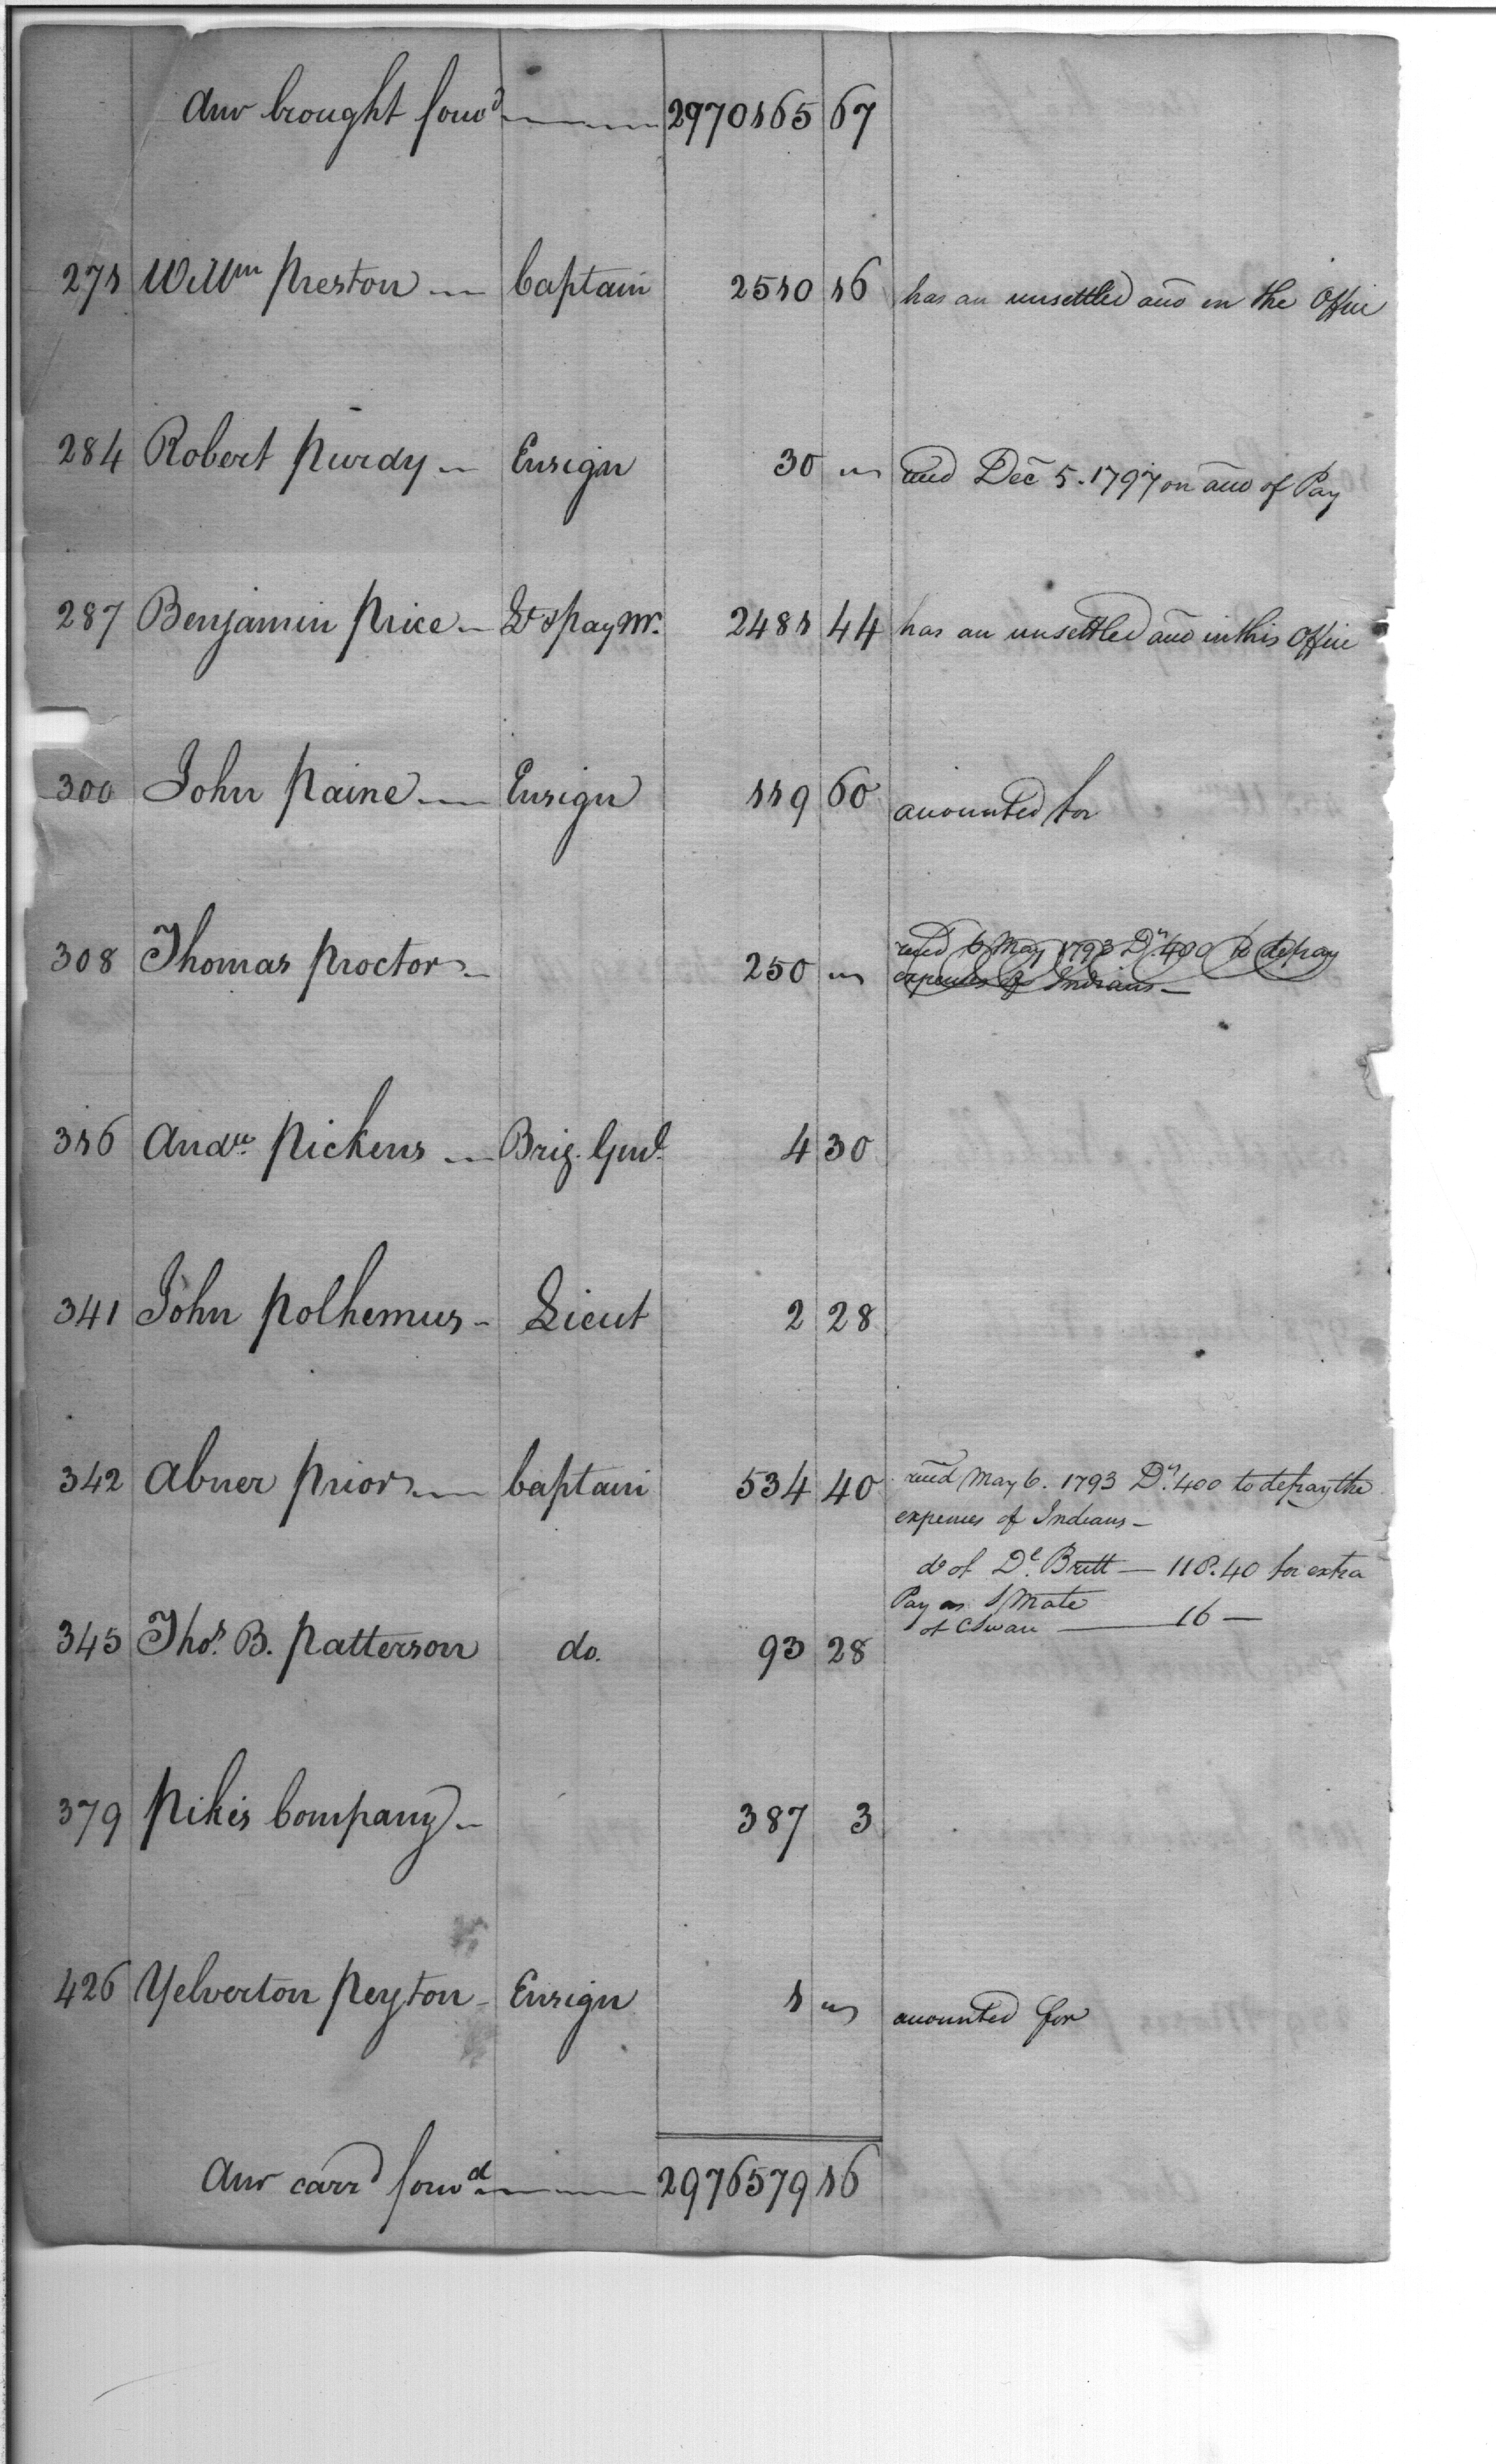 Amt brought forwd 2970165 67
271 Willm Preston Captain 2510 16 has an unsettled acco in the Office
284 Robert Purdy Ensign 30 " recd Dec 5. 1797 on acco of Pay
287 Benjamin Price Lt & Pay Mr. 2481 44 has an unsettled acco in this Office
300 John Paine Ensign 119 60 accounted for
308 Thomas Proctor 250 " recd 6 May 1793 Drs. 400 to defray
expences of Indians
316 Andw Pickens Brig. Genl. 4 30
341 John Polhemus Lieut 2 28
342 Abner Prior Captain 534 40 recd May 6. 1793 Drs. 400 to defray the
expences of Indians
do of Dl. Britt 118.40 for extra
Pay as S Mate
of C Swan 16
345 Thos. B. Patterson do. 93 28
379 Pikes Company 387 3
426 Yelverton Peyton Ensign 1 " accounted for
Amt carrd forwd 2976579 16